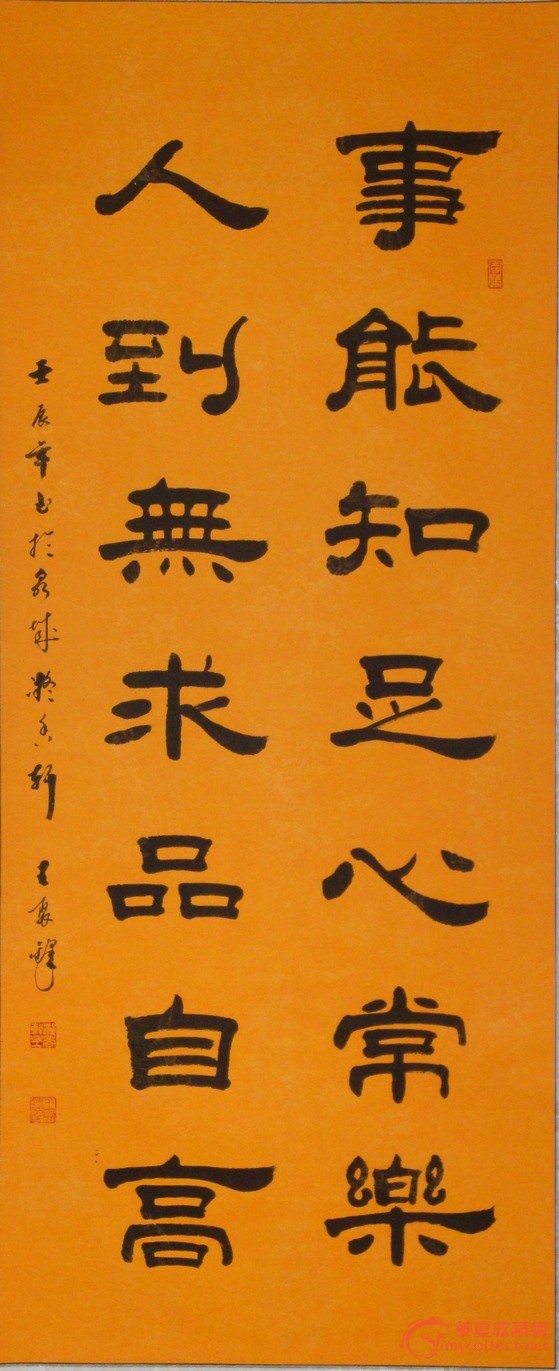 事能知足心常樂
人到無求品自高
壬辰年書於泉城凝香軒 王
華夏收藏網
mycollect.net